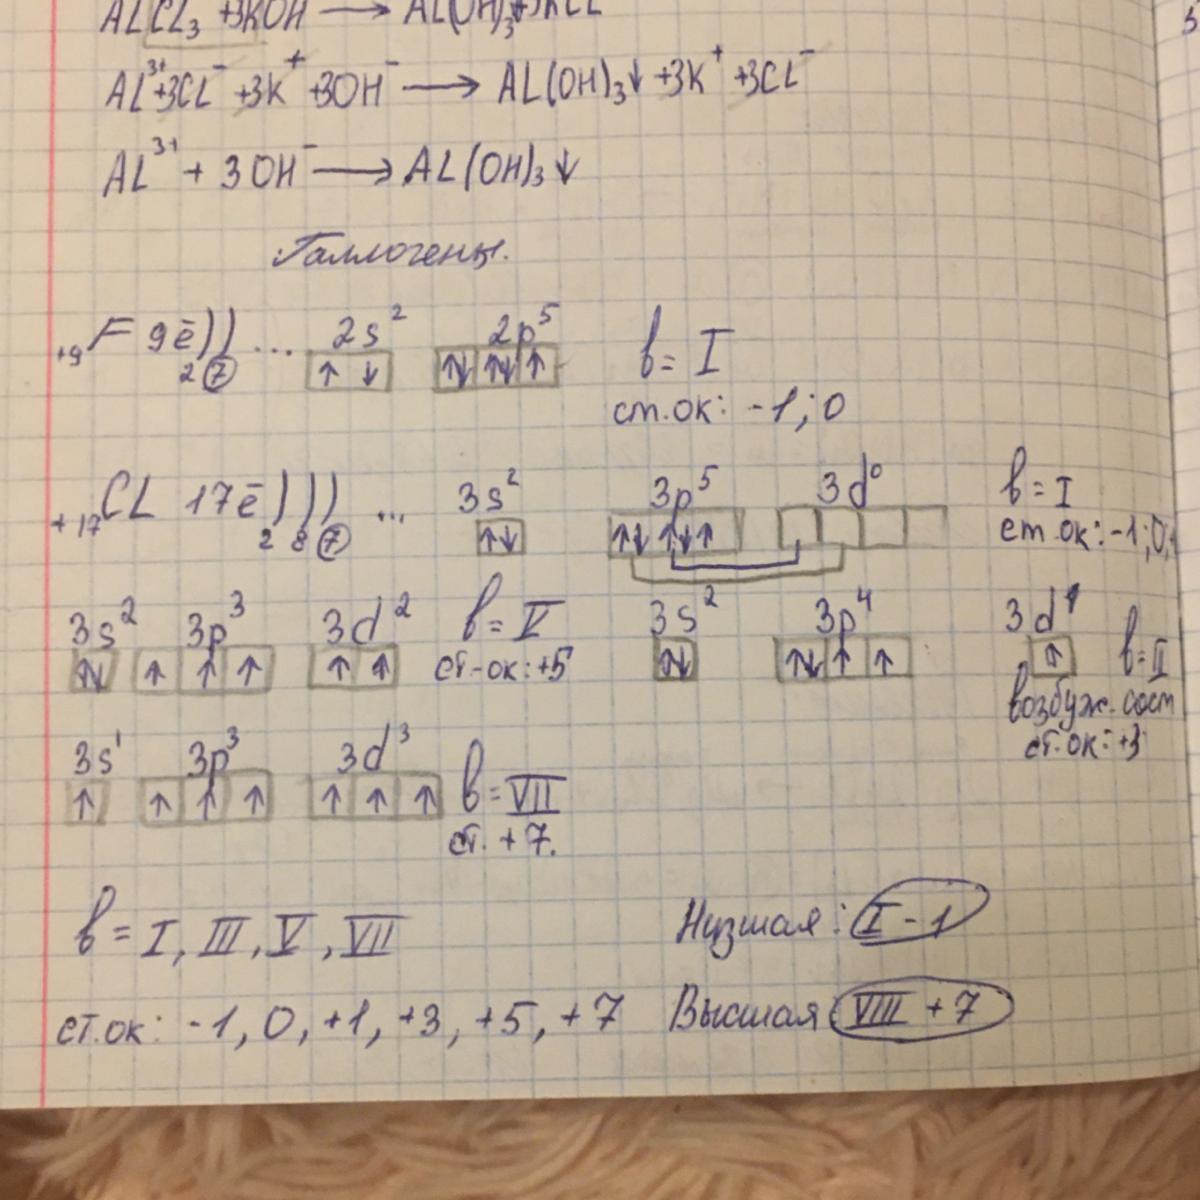 ALCL₃ +3KOH → AL(OH)₃↓+3KCL
AL³⁺+3CL⁻ +3K⁺ +3OH⁻ → AL(OH)₃↓ +3K⁺ +3CL⁻
AL³⁺ + 3OH⁻ → AL(OH)₃↓
Галлогены.
₊₉F 9ē)) ... 2s² 2p⁵ в= I
2 7 ↑ ↓ ↑↓ ↑↓ ↑
ст.ок: -1; 0
₊₁₇CL 17ē))) ... 3s² 3p⁵ 3d⁰ в= I
2 8 7 ↑↓ ↑↓ ↑↓ ↑ ст.ок: -1;0,
3s² 3p³ 3d² в= V 3s² 3p⁴ 3d¹
↑↓ ↑ ↑ ↑ ↑ ↑ ст-ок: +5 ↑↓ ↑↓ ↑ ↑ ↑ в=II
возбуж. сост
ст.ок: +3
3s¹ 3p³ 3d³
↑ ↑ ↑ ↑ ↑ ↑ ↑ в= VII
ст. +7.
в= I, III, V, VII Низшая: I -1
ст.ок: -1, 0, +1, +3, +5, +7 Высшая VIII +7